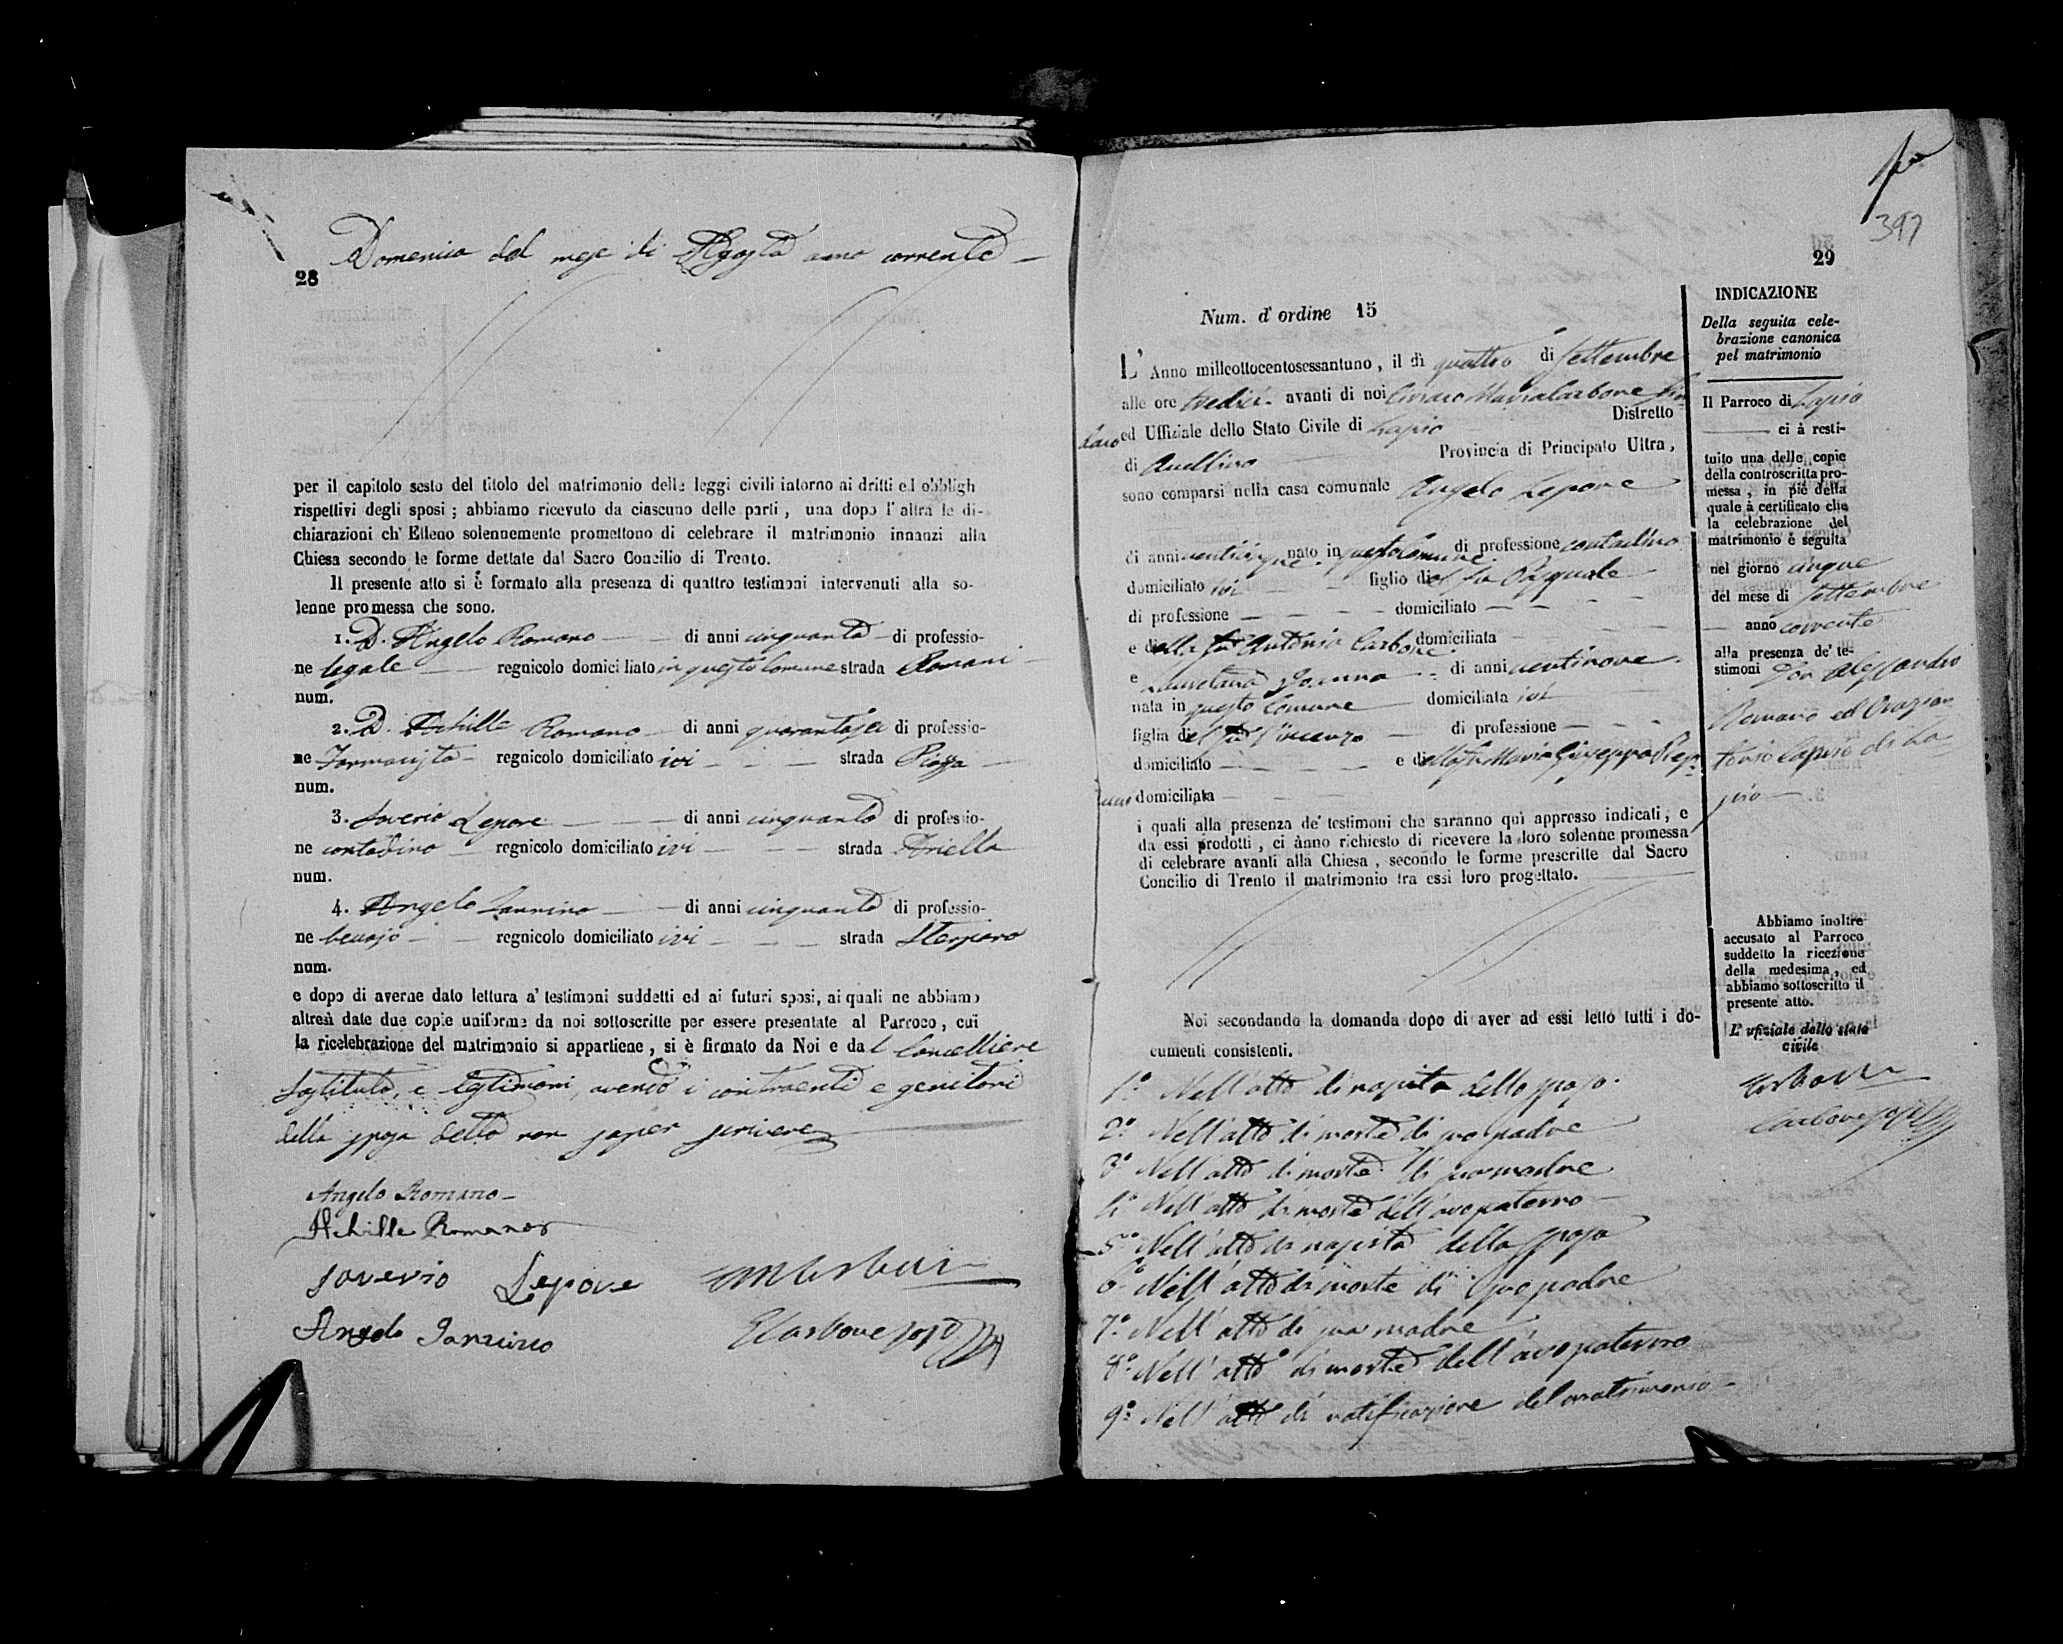 Domenica del mese di Agosto anno corrente
28
per il capitolo sesto del titolo del matrimonio delle leggi civili intorno ai dritti ed obbligh
rispettivi degli sposi ; abbiamo ricevuto da ciascuno delle parti , una dopo l'altra le di-
chiarazioni ch' Elleno solennemente promettono di celebrare il matrimonio innanzi alla
Chiesa secondo le forme dettate dal Sacro Concilio di Trento.
Il presente atto si è formato alla presenza di quattro testimoni intervenuti alla so-
lenne promessa che sono.
1. D. Angelo Romano di anni cinquanta di professio-
ne legale regnicolo domiciliato in questo Comune strada Romani
num.
2. D. Achille Romano di anni quarantasei di professio-
ne Farmacista regnicolo domiciliato ivi strada Piazza
num.
3. Saverio Lepore di anni cinquanta di professio-
ne contadino regnicolo domiciliato ivi strada Ariella
num.
4. Angelo Iannino di anni cinquanta di professio-
ne regnicolo domiciliato ivi strada
num.
e dopo di averne dato lettura a' testimoni suddetti ed ai futuri sposi, ai quali ne abbiamo
altresì date due copie uniforme da noi sottoscritte per essere presentate al Parroco , cui
la ricelebrazione del matrimonio si appartiene , si è firmato da Noi e dal Cancelliere
Sostituto, e testimoni, avendo i contraenti e genitori
della sposa detto non saper scrivere
Angelo Romano
Achille Romano
Saverio Lepore
Angelo Iannino
Carbone
397
29
Num. d' ordine 15
L' Anno milleottocentosessantuno , il dì quattro di Settembre
alle ore tredici avanti di noi Ciriaco Maria Carbone Sin-
daco ed Uffiziale dello Stato Civile di Lapio Distretto
di Avellino Provincia di Principato Ultra ,
sono comparsi nella casa comunale Angelo Lepore
di anni venticinque nato in questo Comune di professione contadino
domiciliato ivi figlio del fu Pasquale
di professione domiciliato
e di della fu Antonia Carbone domiciliata
e Lauretana Ioanna di anni ventinove
nata in questo Comune domiciliata ivi
figlia di del fu Vincenzo di professione
domiciliato e della fu Maria Giuseppa
domiciliata
i quali alla presenza de' testimoni che saranno quì appresso indicati , e
da essi prodotti , ci ànno richiesto di ricevere la loro solenne promessa
di celebrare avanti alla Chiesa , secondo le forme prescritte dal Sacro
Concilio di Trento il matrimonio tra essi loro progettato.
Noi secondando la domanda dopo di aver ad essi letto tutti i do-
cumenti consistenti.
1º Nell'atto di nascita dello sposo.
2º Nell'atto di morte di suo padre
3º Nell'atto di morte di sua madre
4º Nell'atto di morte dell'avo paterno
5º Nell'atto di nascita della sposa
6º Nell'atto di morte di suo padre
7º Nell'atto di sua madre
8º Nell'atto di morte dell'avo paterno
9º Nell'atto di notificazione del matrimonio
INDICAZIONE
Della seguita cele-
brazione canonica
pel matrimonio
Il Parroco di Lapio
ci à resti-
tuito una delle copie
della controscritta pro-
messa , in piè della
quale à certificato che
la celebrazione del
matrimonio è seguita
nel giorno cinque
del mese di Settembre
anno corrente
alla presenza de' te-
stimoni Don Alessandro
Romano ed Orazian-
tonio Caputo di La-
pio
Abbiamo inoltre
accusato al Parroco
suddetto la ricezione
della medesima , ed
abbiamo sottoscritto il
presente atto.
L' ufiziale dello stato
civile
Carbone
Carbone